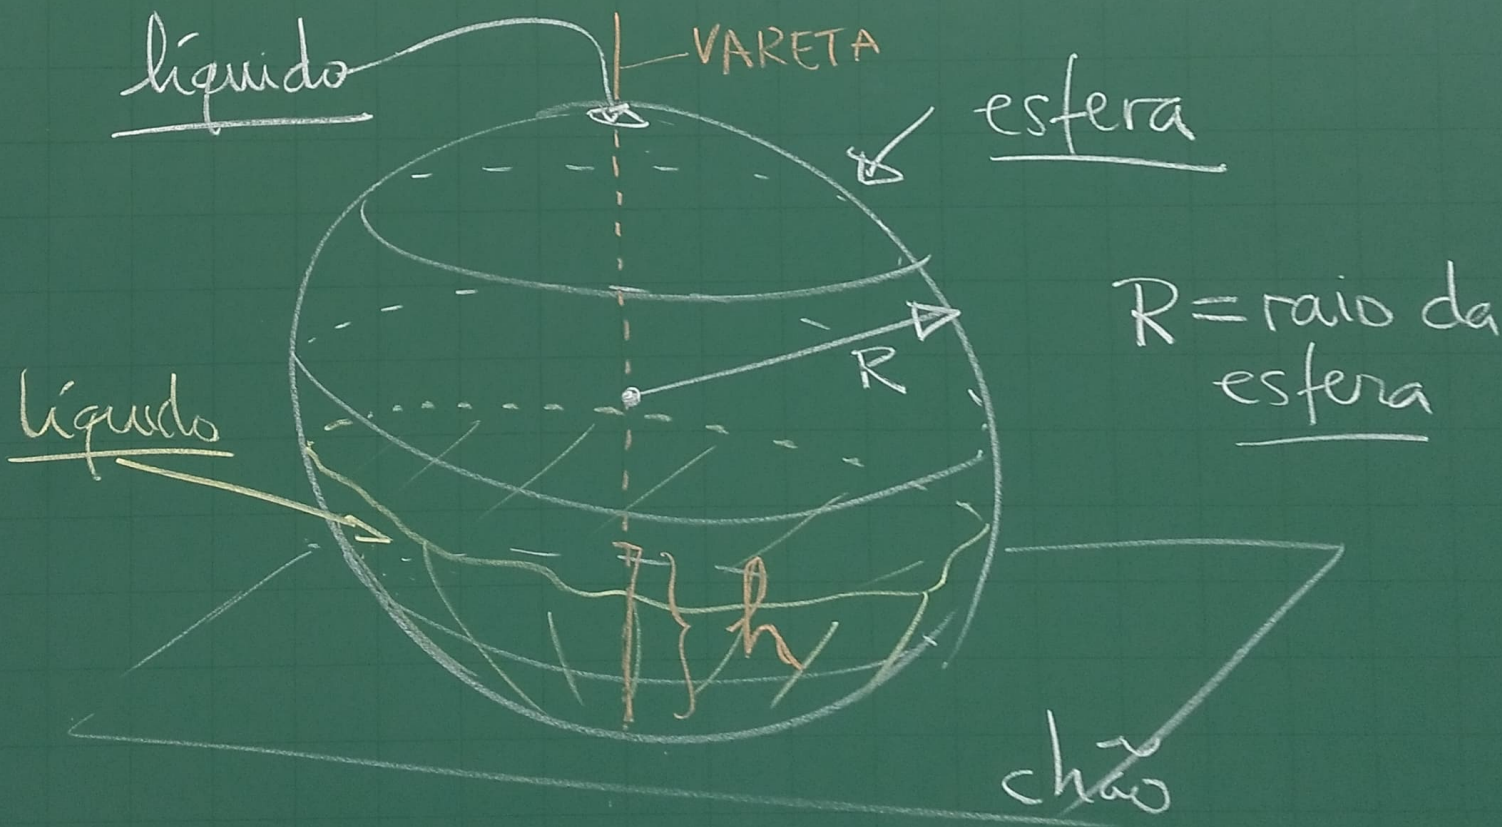 líquido
VARETA
esfera
R = raio da
esfera
R
líquido
h
chão